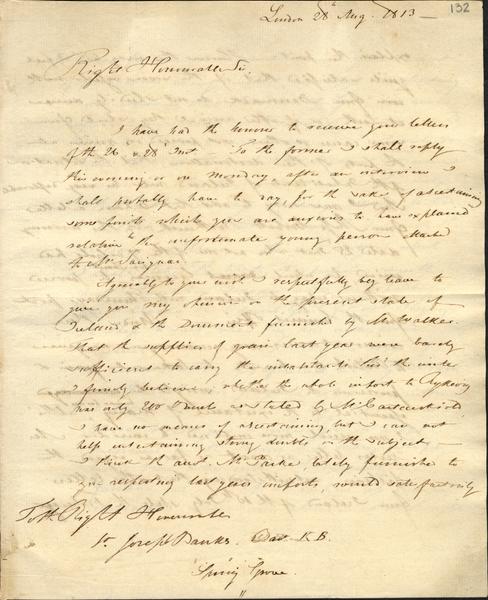 132
London 28th Aug. 1813 —
Right Honourable Sir,
I have had the honor to receive your letters
of the 26 & 28 Inst. To the former I shall reply
this evening or on Monday, after an interview I
shall probably have to day, for the sake of ascertaining
some points which you are anxious to have explained
relative to the unfortunate young person
to Mr. Savignac.
Agreeably to your wish I respectfully beg leave to
give you my opinion on the present state of
Iceland & the Document furnished by Mr. Walker.
That the supplies of grain last year were barely
sufficient to carry the inhabitants thro' the winter
I firmly believe; whether the whole import to
was only 200 as stated by Mr.
I have no means of ascertaining, but I can not
help entertaining strong doubts on the subject —
I think the acct. Mr. Parke lately furnished to
you respecting last years imports, would satisfactorily
To the Right Honourable
Sr. Joseph Banks Bart. K.B.
Spring Grove.